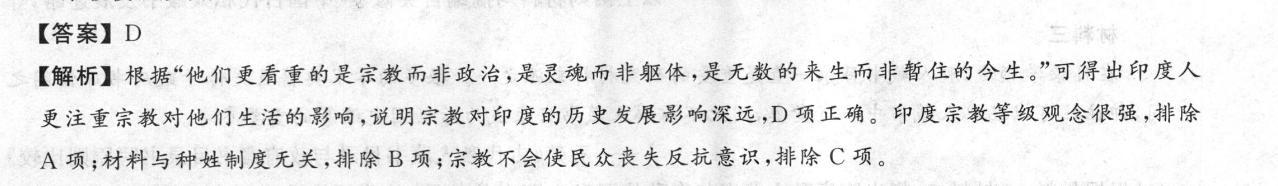 【答案】D
【解析】根据“他们更看重的是宗教而非政治,是灵魂而非躯体,是无数的来生而非暂住的今生。”可得出印度人
更注重宗教对他们生活的影响,说明宗教对印度的历史发展影响深远,D项正确。印度宗教等级观念很强,排除
A项;材料与种姓制度无关,排除B项;宗教不会使民众丧失反抗意识,排除C项。